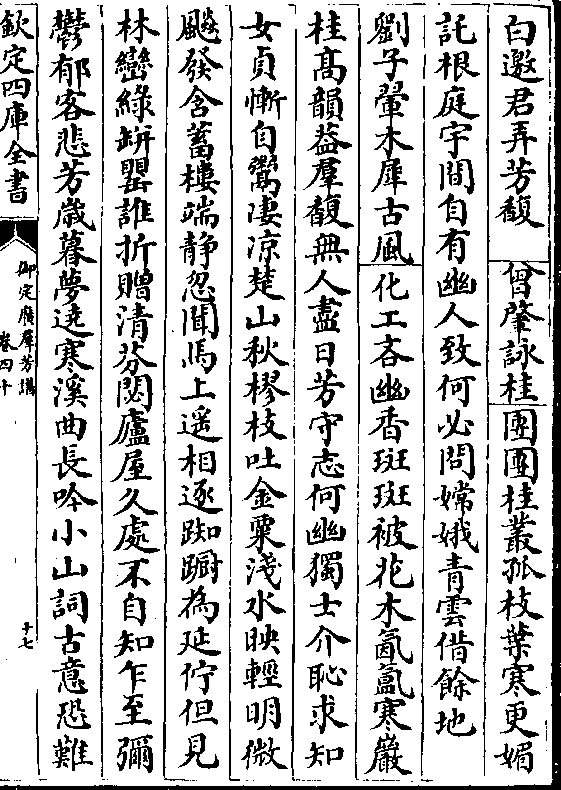 白邀君弄芳馥　曾肇詠桂團團桂叢孤枝葉寒更媚
託根庭宇間自有幽人致何必問嫦娥青雲借餘地
劉子翬木犀古風化工吝幽香斑斑被花木氤氳寒巖
桂高韻益羣馥無人盡日芳守志何幽獨士介恥求知
女貞慚自鬻凄凉楚山秋樛枝吐金粟淺水映輕明微
飈發含蓄樓端静忽聞馬上遥相逐踟蹰為延佇但見
林巒綠缾罌誰折贈清芬閟廬屋久處不自知乍至彌
鬱郁客悲芳歲暮夢遶寒溪曲長吟小山詞古意恐難
欽定四庫全書
御定廣羣芳譜
卷四十
十七